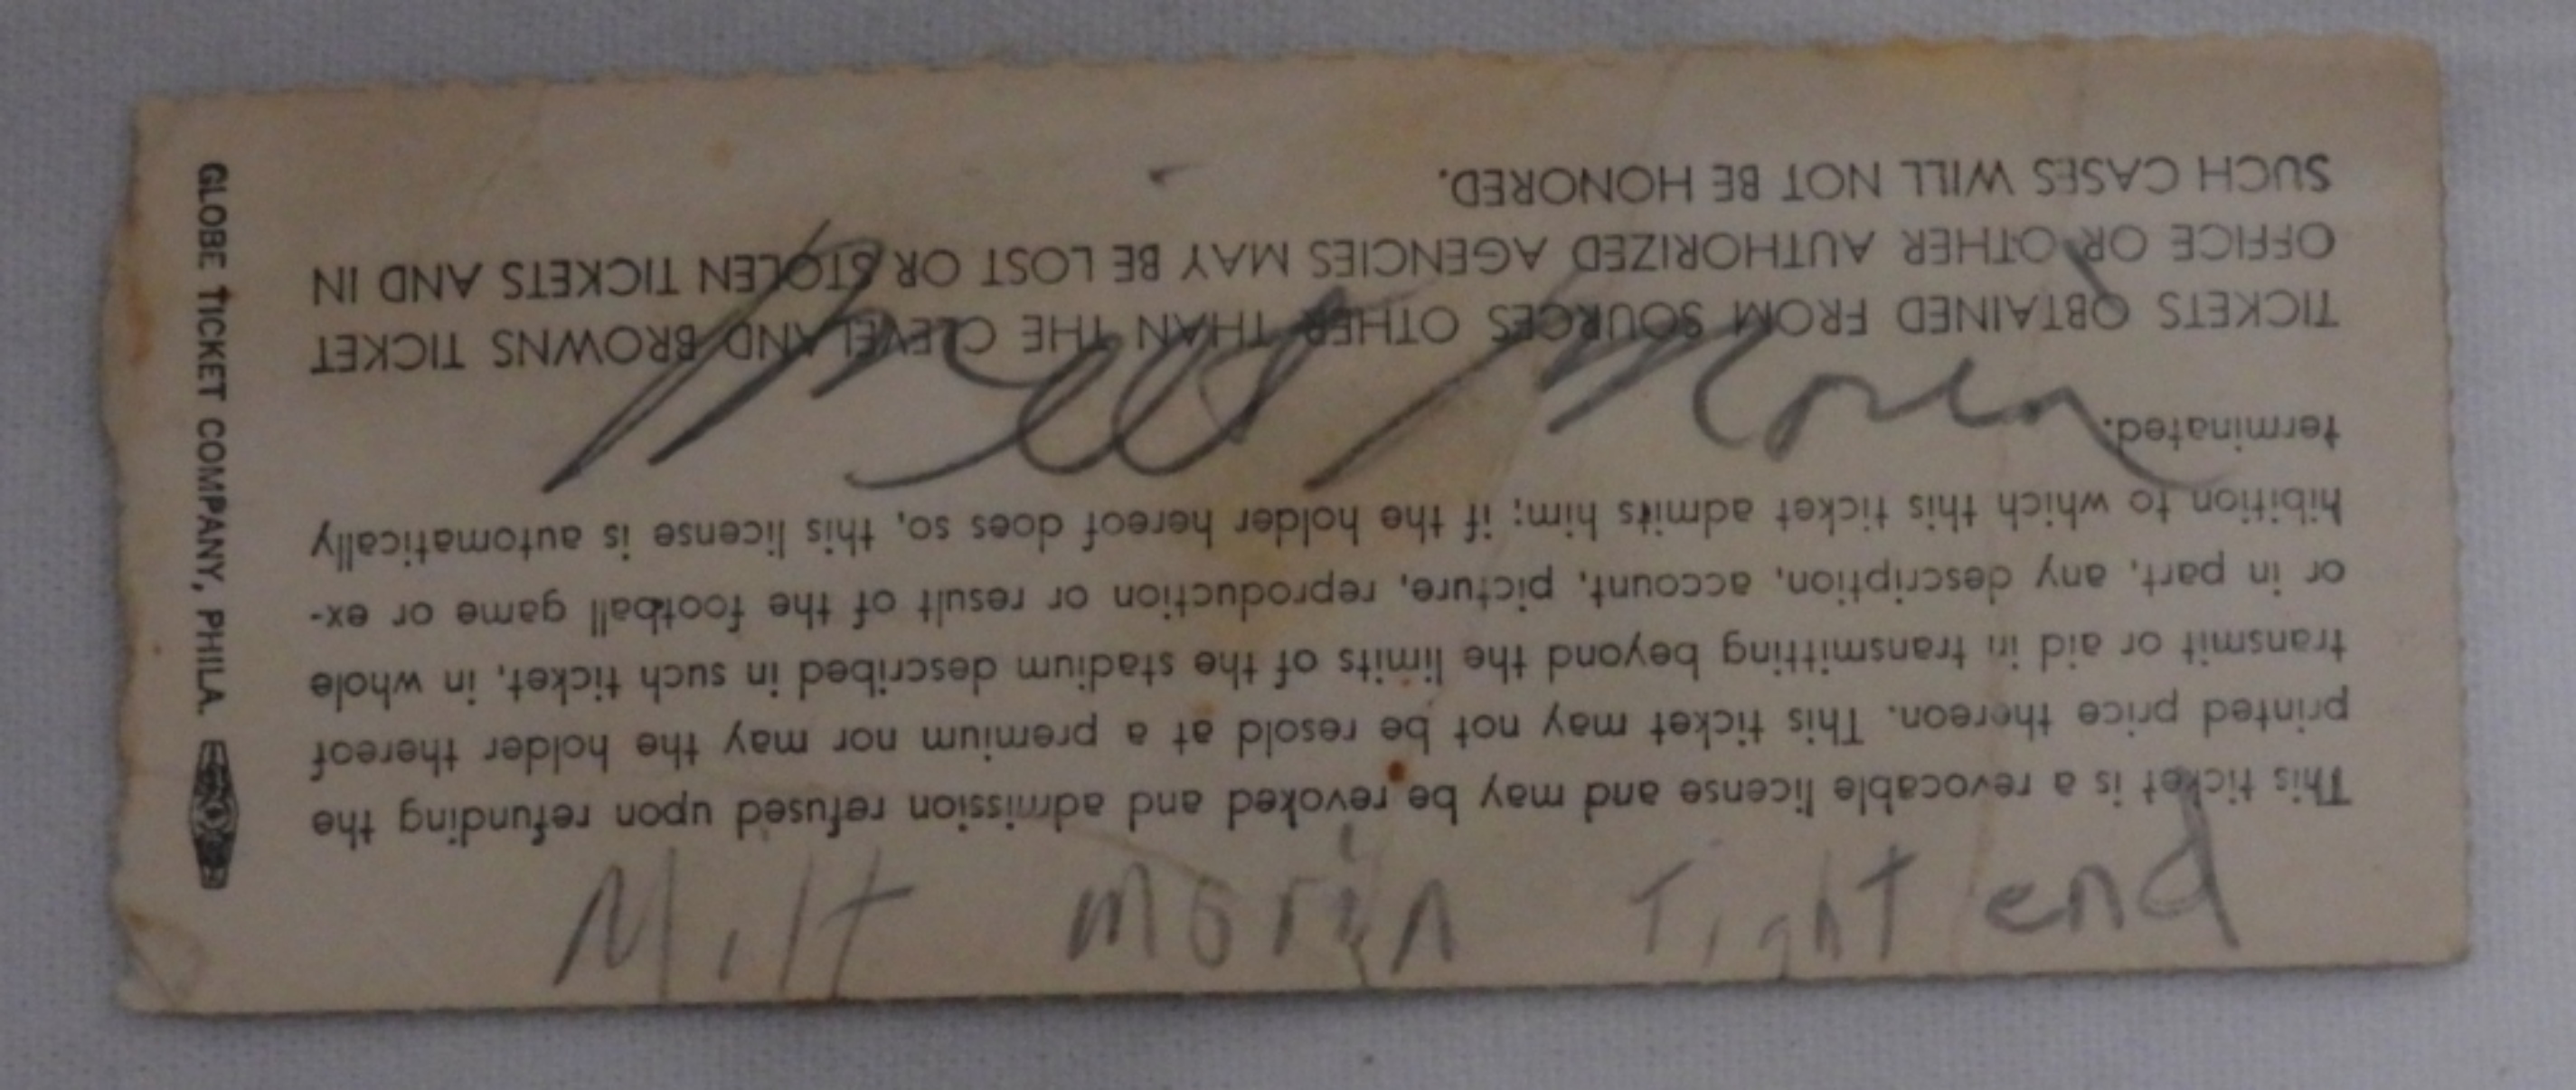 This ticket is a revocable license and may be revoked and admission refused upon refunding the
printed price thereon. This ticket may not be resold at a premium nor may the holder thereof
transmit or aid in transmitting beyond the limits of the stadium described in such ticket, in whole
or in part, any description, account, picture, reproduction or result of the football game or ex-
hibition to which this ticket admits him; if the holder hereof does so, this license is automatically
terminated.
TICKETS OBTAINED FROM SOURCES OTHER THAN THE CLEVELAND BROWNS TICKET
OFFICE OR OTHER AUTHORIZED AGENCIES MAY BE LOST OR STOLEN TICKETS AND IN
SUCH CASES WILL NOT BE HONORED.
GLOBE TICKET COMPANY, PHILA.
Milt Morin
Milt Morin Tight end